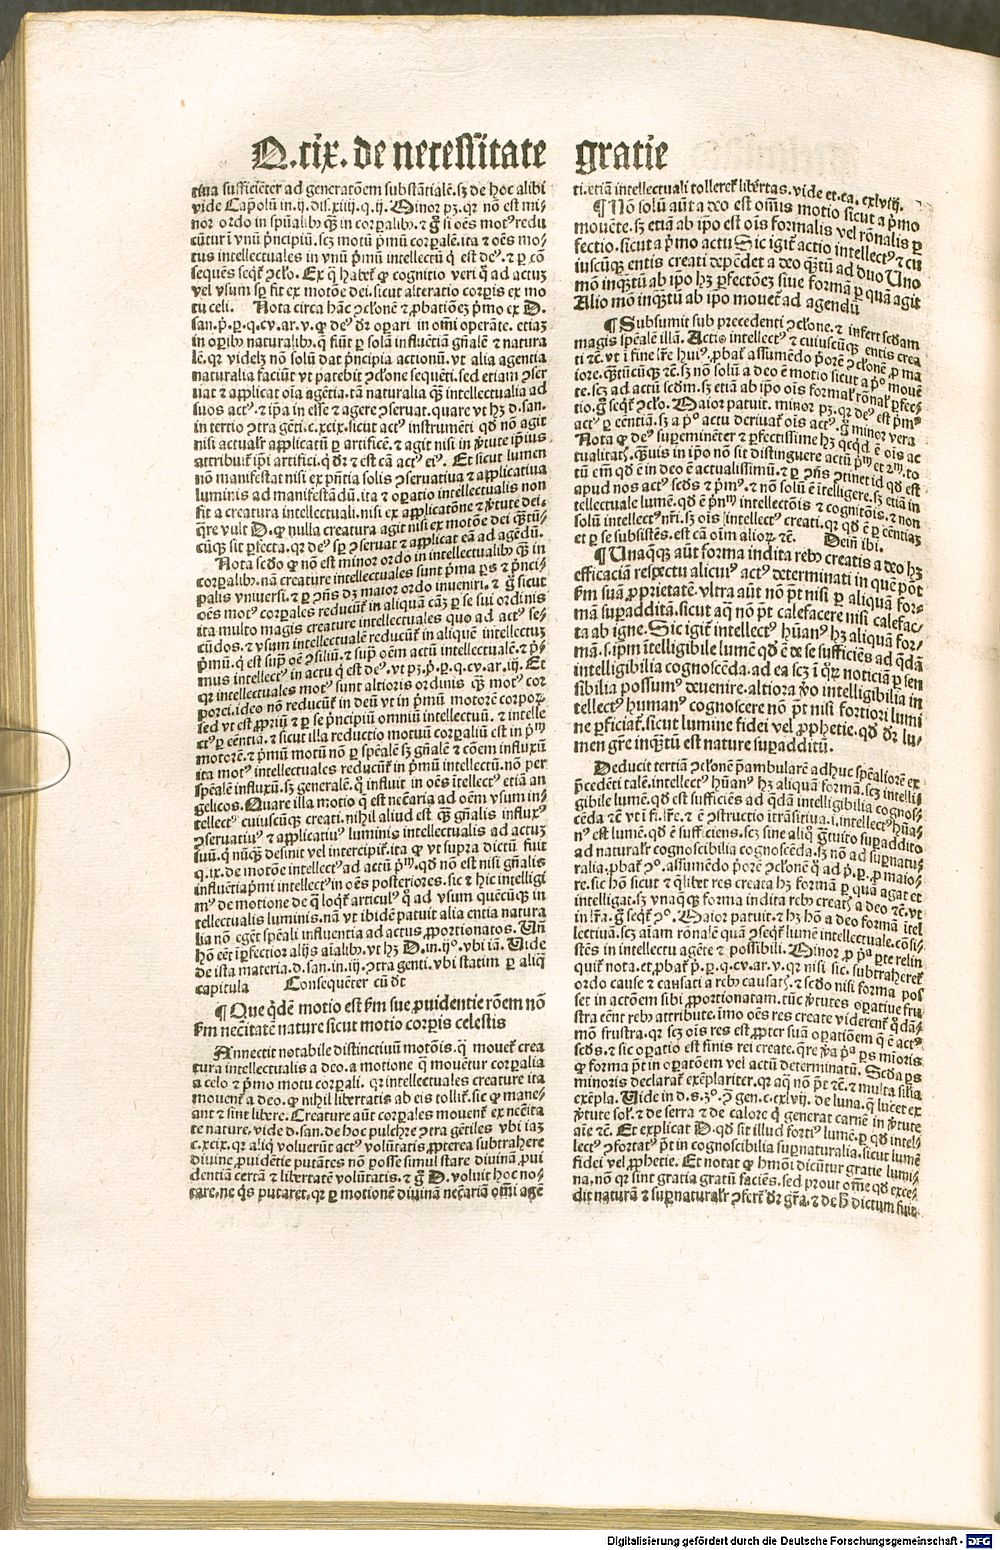 Q.cix. de necessitate gratie
tiua sufficiēter ad generatōem substātialē. sꝫ de hoc alibi
vide Cap̄olū in.ij.dis.xiiij.q.ij. Minor pꝫ. qꝛ nō est mi-
nor ordo in spūalibꝰ q̄ꝫ in corꝑalibꝰ. ⁊ g̊ si oēs motꝰ redu
cūtur ī vnū pͥncipiū. scꝫ motū pͥmū corꝑalē. ita ⁊ oēs mo-
tus intellectuales in vnū pͥmū intellectū q̇ est deꝰ. ⁊ ꝑ cō
sequēs seqͭ ↄclo. Ex q̇ habeͭ ꝙ cognitio veri q̄ ad actuꝫ
vel vsum sꝑ fit ex motōe dei. sicut alteratio corꝑis ex mo
tu celi. Nota circa hāc ↄclonē ⁊ ꝓbationēꝫ pͥmo ex D.
san.ꝑ.ꝑ.q.cv.ar.v. ꝙ deꝰ dꝛ oꝑari in omī operāte. etiaꝫ
in oꝑibꝰ naturalibꝰ. q̄ fiūt ꝑ solā influētiā gn̄alē ⁊ natura
lē. qꝛ videlꝫ nō solū dat pͥncipia actionū. vt alia agentia
naturalia faciūt vt patebit ↄclone sequēti. sed etiam ↄser
uat ⁊ applicat oīa agētia. tā naturalia q̄ꝫ intellectualia ad
suos actꝰ. ⁊ ip̄a in esse ⁊ agere ↄseruat. quare vt hꝫ d. san.
in tertio ↄtra gēti.c.xcix. sicut actꝰ instrumēti qd̄ nō agit
nisi actualr̄ applicatū ꝑ artificē. ⁊ agit nisi in ꝟtute ip̄ius
attribuiͭ ip̄i artifici. q̄ dꝛ ⁊ est cā actꝰ eiꝰ. Et sicut lumen
nō manifestat nisi ex pn̄tia solis ↄseruatiua ⁊ applicatiua
luminis ad manifestādū. ita ⁊ oꝑatio intellectualis non
fit a creatura intellectuali. nisi ex applicatōne ⁊ ꝟtute dei.
q̄re vult D. ꝙ nulla creatura agit nisi ex motōe dei q̄ꝫtū-
cūqꝫ sit ꝑfecta. qꝛ deꝰ sꝑ ↄseruat ⁊ applicat eā ad agēdū.
Nota scd̄o ꝙ nō est minor ordo in intellectualibꝰ q̄ꝫ in
corꝑalibꝰ. nā creature intellectuales sunt pͥma ꝑs ⁊ pͥnci-
palis vniuersi. ⁊ ꝑ ↄn̄s dꝫ maior ordo inueniri. ⁊ g̊ sicut
oēs motꝰ corꝑales reducūt̄ in aliquam cāꝫ ꝑ se sui ordinis
ita multo magis creature intellectuales quo ad actꝰ se-
cūdos. ⁊ vsum intellectualē reducūt̄ in aliquē intellectuꝫ
pͥmū. q̇ est suꝑ oē ↄsiliū. ⁊ suꝑ oēm actū intellectualē. ⁊ pͥ-
mus intellectꝰ in actu q̇ est deꝰ. vt pꝫ.ꝑ.ꝑ.q.cv.ar.iij. Et
qꝛ intellectuales motꝰ sunt altioris ordinis q̄ꝫ motꝰ cor
porei. ideo nō reducūt̄ in deū vt in pͥmū motorē corporꝫ
sed vt est ꝓpriū ⁊ ꝑ se pͥncipiū omniū intellectuū. ⁊ intelle
ctꝰ ꝑ cēntia. ⁊ sicut illa reductio motuū corꝑaliū est in pͥm̄
motorē. ⁊ pͥmū motū nō ꝑ spēalē sꝫ gn̄alē ⁊ cōem influxū
ita motꝰ intellectuales reducūt̄ in pͥmū intellectū. nō per
spēalē influxū. sꝫ generalē. q̇ influit in oēs ītellectꝰ etiā an
gelicos. Quare illa motio q̄ est necc̄aria ad oēm vsum in-
tellectꝰ cuiuscūqꝫ creati. nihil aliud est q̄ꝫ gn̄alis influxꝰ
ↄseruatiuꝰ ⁊ applicatiuꝰ luminis intellectualis ad actuꝫ
suū. q̇ nūq̄ꝫ desinit vel intercipiͭ. ita ꝙ vt supra dictū fuit
q.ix. de motōe intellectꝰ ad actū pͥm̄. qd̄ nō est nisi gn̄alis
influētia pͥmi intellectꝰ in oēs posteriores. sic ⁊ hic intelligi
mꝰ de motione de q̄ loqͭ articulꝰ q̇ ad vsum quēcūqꝫ in
tellectualis luminis. nā vt ibidē patuit alia entia natura
lia nō egēt spēali influentia ad actus ꝓportionatos. Un̄
hō eēt īꝑfectior alijs aīalibꝰ. vt hꝫ D. in.ijº. vbi iā. Uide
de ista materia. d. san. in.iij. ↄtra genti. vbi statim ꝑ aliq̄
capitula Consequēter cū dt
¶ Que q̇dē motio est s̄m sue ꝓuidentie rōem nō
s̄m necītatē nature sicut motio corꝑis celestis
Annectit notabile distinctiuū motōis. q̄ mouet̄ crea
tura intellectualis a deo. a motione q̄ mouētur corꝑalia
a celo ⁊ pͥmo motu corꝑali. qꝛ intellectuales creature ita
mouent̄ a deo. ꝙ nihil libertatis ab eis tolliͭ. sic ꝙ mane-
ant ⁊ sint libere. Creature aūt corꝑales mouent̄ ex necc̄ita
te nature. vide d. san. de hoc pulchre ↄtra gētiles vbi iaꝫ
c.xcix. qꝛ aliq̇ voluerūt actꝰ volūtatis ꝓpterea subtrahere
diuine ꝓuidētie putātes nō posse simul stare diuinā ꝓui
dentiā certā ⁊ libertatē volūtatis. ⁊ g̊ D. voluit hoc no-
tare. ne q̇s putaret. qꝛ ꝑ motionē diuinā necc̄ariā om̄i agē
ti. etiā intellectuali tolleret̄ libertas. vide et. ca. cxlviij.
¶ Nō solū aūt a deo est om̄is motio sicut a pͥmo
mouēte. sꝫ etiā ab ip̄o est oīs formalis vel rōnalis ꝑ
fectio. sicut a pͥmo actu Sic igiͭ actio intellectꝰ ⁊ cu
iuscūqꝫ entis creati depēdet a deo q̄ꝫtū ad duo Uno
mō inq̄ꝫtū ab ip̄o hꝫ ꝑfectōeꝫ siue formā ꝑ quā agit
Alio mō inq̄ꝫtū ab ipo mouet̄ ad agendū
¶ Subsumit sub precedenti ↄclone. ⁊ infert scd̄am
magis spēalē illā. Actio intellectꝰ ⁊ cuiuscūqꝫ entis crea
ti ⁊c̄. vt ī fine lr̄e huiꝰ. ꝓbat̄ assumēdo pͥorē ↄclonē ꝓ ma
iore. q̄ꝫtūcūqꝫ ⁊c̄. sꝫ nō solū a deo ē motio sicut a pͦ mouē
te. scꝫ ad actū scd̄m. sꝫ etiā ab ip̄o oīs formal̄ rōnal̄ ꝑfec-
tio. g̊ seqͭ ↄclo. Maior patuit. minor pꝫ. qꝛ deꝰ est pͥmꝰ
actꝰ ꝑ cēntiā. sꝫ a pͦ actu deriuat̄ oīs actꝰ. g̊ minor vera
Nota ꝙ deꝰ suꝑeminēter ⁊ ꝑfectissime hꝫ qcqd̄ ē oīs ac
tualitatꝭ. q̄ꝫuis in ip̄o nō sit distinguere actū pͥm̄ et ꝛm̄. to
tū em̄ qd̄ ē in deo ē actualissimū. ⁊ ꝑ ↄn̄s ↄtinet id qd̄ est
apud nos actꝰ scd̄s ⁊ pͥmꝰ. ⁊ nō solū ē ītelligere. sꝫ etiā in
tellectuale lumē. qd̄ ē pͥn̄m intellectōis ⁊ cognitōis. ⁊ non
solū intellectꝰ nr̄i. sꝫ oīs intellectꝰ creati. qꝛ qd̄ ē ꝑ cēntiaꝫ
et ꝑ se subsistēs. est cā oīm alioꝝ ⁊c̄. Dein̄ ibi.
¶ Unaq̄qꝫ aūt forma indita rebꝰ creatis a deo hꝫ
efficaciā respectu alicuiꝰ actꝰ determinati in quē pōt
s̄m suā ꝓprietatē. vltra aūt nō p̄t nisi ꝑ aliquā for-
mā suꝑadditā. sicut aq̄ nō p̄t calefacere nisi calefac-
ta ab igne. Sic igiͭ intellectꝰ hūanꝰ hꝫ aliquā for-
mā. s. ip̄m ītelligibile lumē qd̄ ē de se sufficiēs ad q̄dā
intelligibilia cognoscēda. ad ea scꝫ ī q̄ꝝ noticiā ꝑ sen
sibilia possumꝰ deuenire. altiora ꝟo intelligibilia in
tellectꝰ humanꝰ cognoscere nō p̄t nisi fortiori lumi
ne ꝑficiat̄. sicut lumine fidei vel ꝓphetie. qd̄ dꝛ lu-
men gr̄e inq̄ꝫtū est nature suꝑadditū.
Deducit tertiā ↄclonē p̄ambularē adhuc spēaliorē ex
p̄cedēti talē. intellectꝰ hūanꝰ hꝫ aliquā formā. scꝫ intelli
gibile lumē. qd̄ est sufficiēs ad q̄dā intelligibilia cognos-
cēda ⁊c̄ vt ī fi. lr̄e. ⁊ ē ↄstructio ītrāsitiua. i. intellectꝰ hūa-
nꝰ est lumē. qd̄ ē sufficiens. scꝫ sine aliq̇ gͣtuito suꝑaddito
ad naturalr̄ cognoscibilia cognoscēda. sꝫ nō ad suꝑnatu-
ralia. ꝓbat̄ ↄº. assumēdo pͥorē ↄclonē q̇ ad ꝑ.ꝑ. ꝓ maio-
re. sic hō sicut ⁊ q̄libet res creata hꝫ formā ꝑ quā agat et
intelligat. sꝫ vnaq̄qꝫ forma indita rebꝰ creatꝭ a deo ⁊c̄. vt
in lr̄a. g̊ seqͭ ↄº. Maior patuit. ⁊ hꝫ hō a deo formā ītel
lectiuā. scꝫ aīam rōnalē quā ↄseqͭ lumē intellectuale. cōsi-
stēs in intellectu agēte ⁊ possibili. Minor ꝓ pͣ ꝑte relin
quiͭ nota. et ꝓbat̄ ꝑ.ꝑ.q.cv.ar.v. qꝛ nisi sic. subtraheret̄
ordo cause ⁊ causati a rebꝰ causatꝭ. ⁊ scd̄o nisi forma pos
set in actōem sibi ꝓportionatam. tūc ꝟtutes oꝑatiue fru
stra eēnt rebꝰ attribute. imo oēs res create viderent̄ q̄dā-
mō frustra. qꝛ scꝫ oīs res est ꝓpter suā oꝑatiōem q̄ ē actꝰ
scd̄s. ⁊ sic oꝑatio est finis rei create. q̄re ꝟa pͣ ꝑs mīoris
ꝙ forma p̄t in oꝑatōem vel actū determinatū. Scd̄a ꝑs
minoris declarat̄ exēplariter. qꝛ aq̄ nō p̄t ⁊c̄. ⁊ multa silīa
exēpla. Uide in d. s. ꝫº. ↄ̄ gen. c. cxlvij. de luna. q̄ lucet ex
ꝟtute sol̄. ⁊ de serra ⁊ de calore q̇ generat carnē in ꝟtute
aīe ⁊c̄. Et explicat D. qd̄ sit illud fortiꝰ lumē. ꝑ qd̄ intel-
lectꝰ ↄfortatꝰ p̄t in cognoscibilia suꝑnaturalia. sicut lumē
fidei vel ꝓphetie. Et notat ꝙ hmōi dicūtur gratie lumi-
na. nō qꝛ sint gratia gratū faciēs. sed prout om̄e qd̄ exce-
dit naturā ⁊ suꝑnaturalr̄ ↄfert̄ dꝛ gr̄a. ⁊ de h̄ dictum fuit
Digitalisierung gefördert durch die Deutsche Forschungsgemeinschaft - DFG